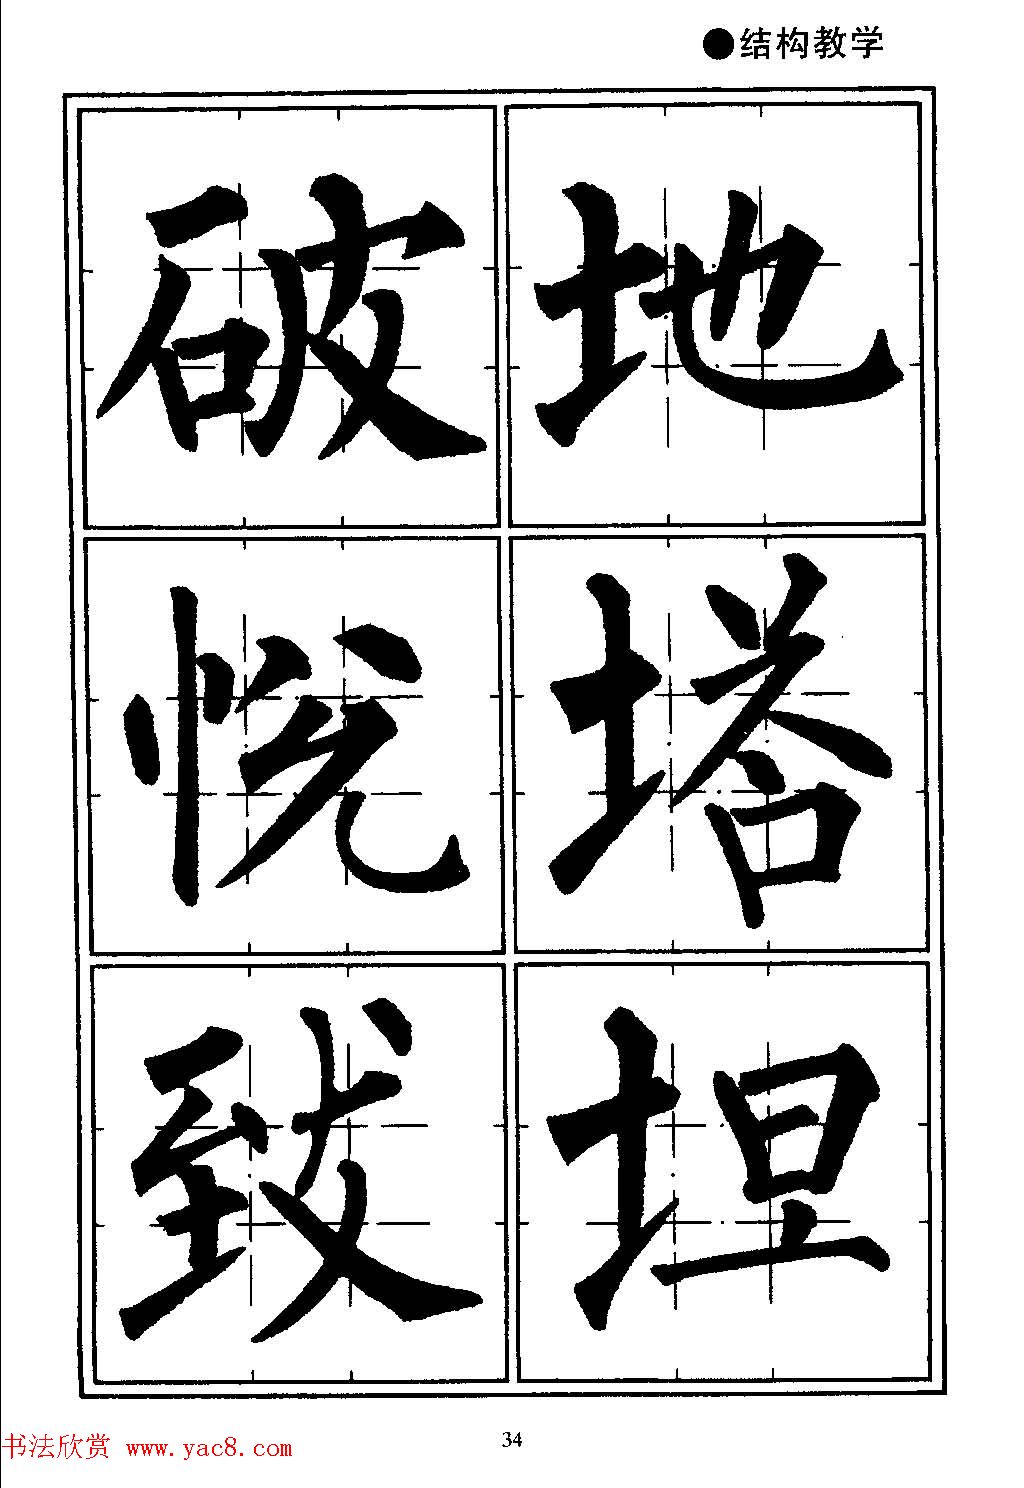 ●结构教学
破地
悦塔
致坦
书法欣赏 www.yac8.com
34